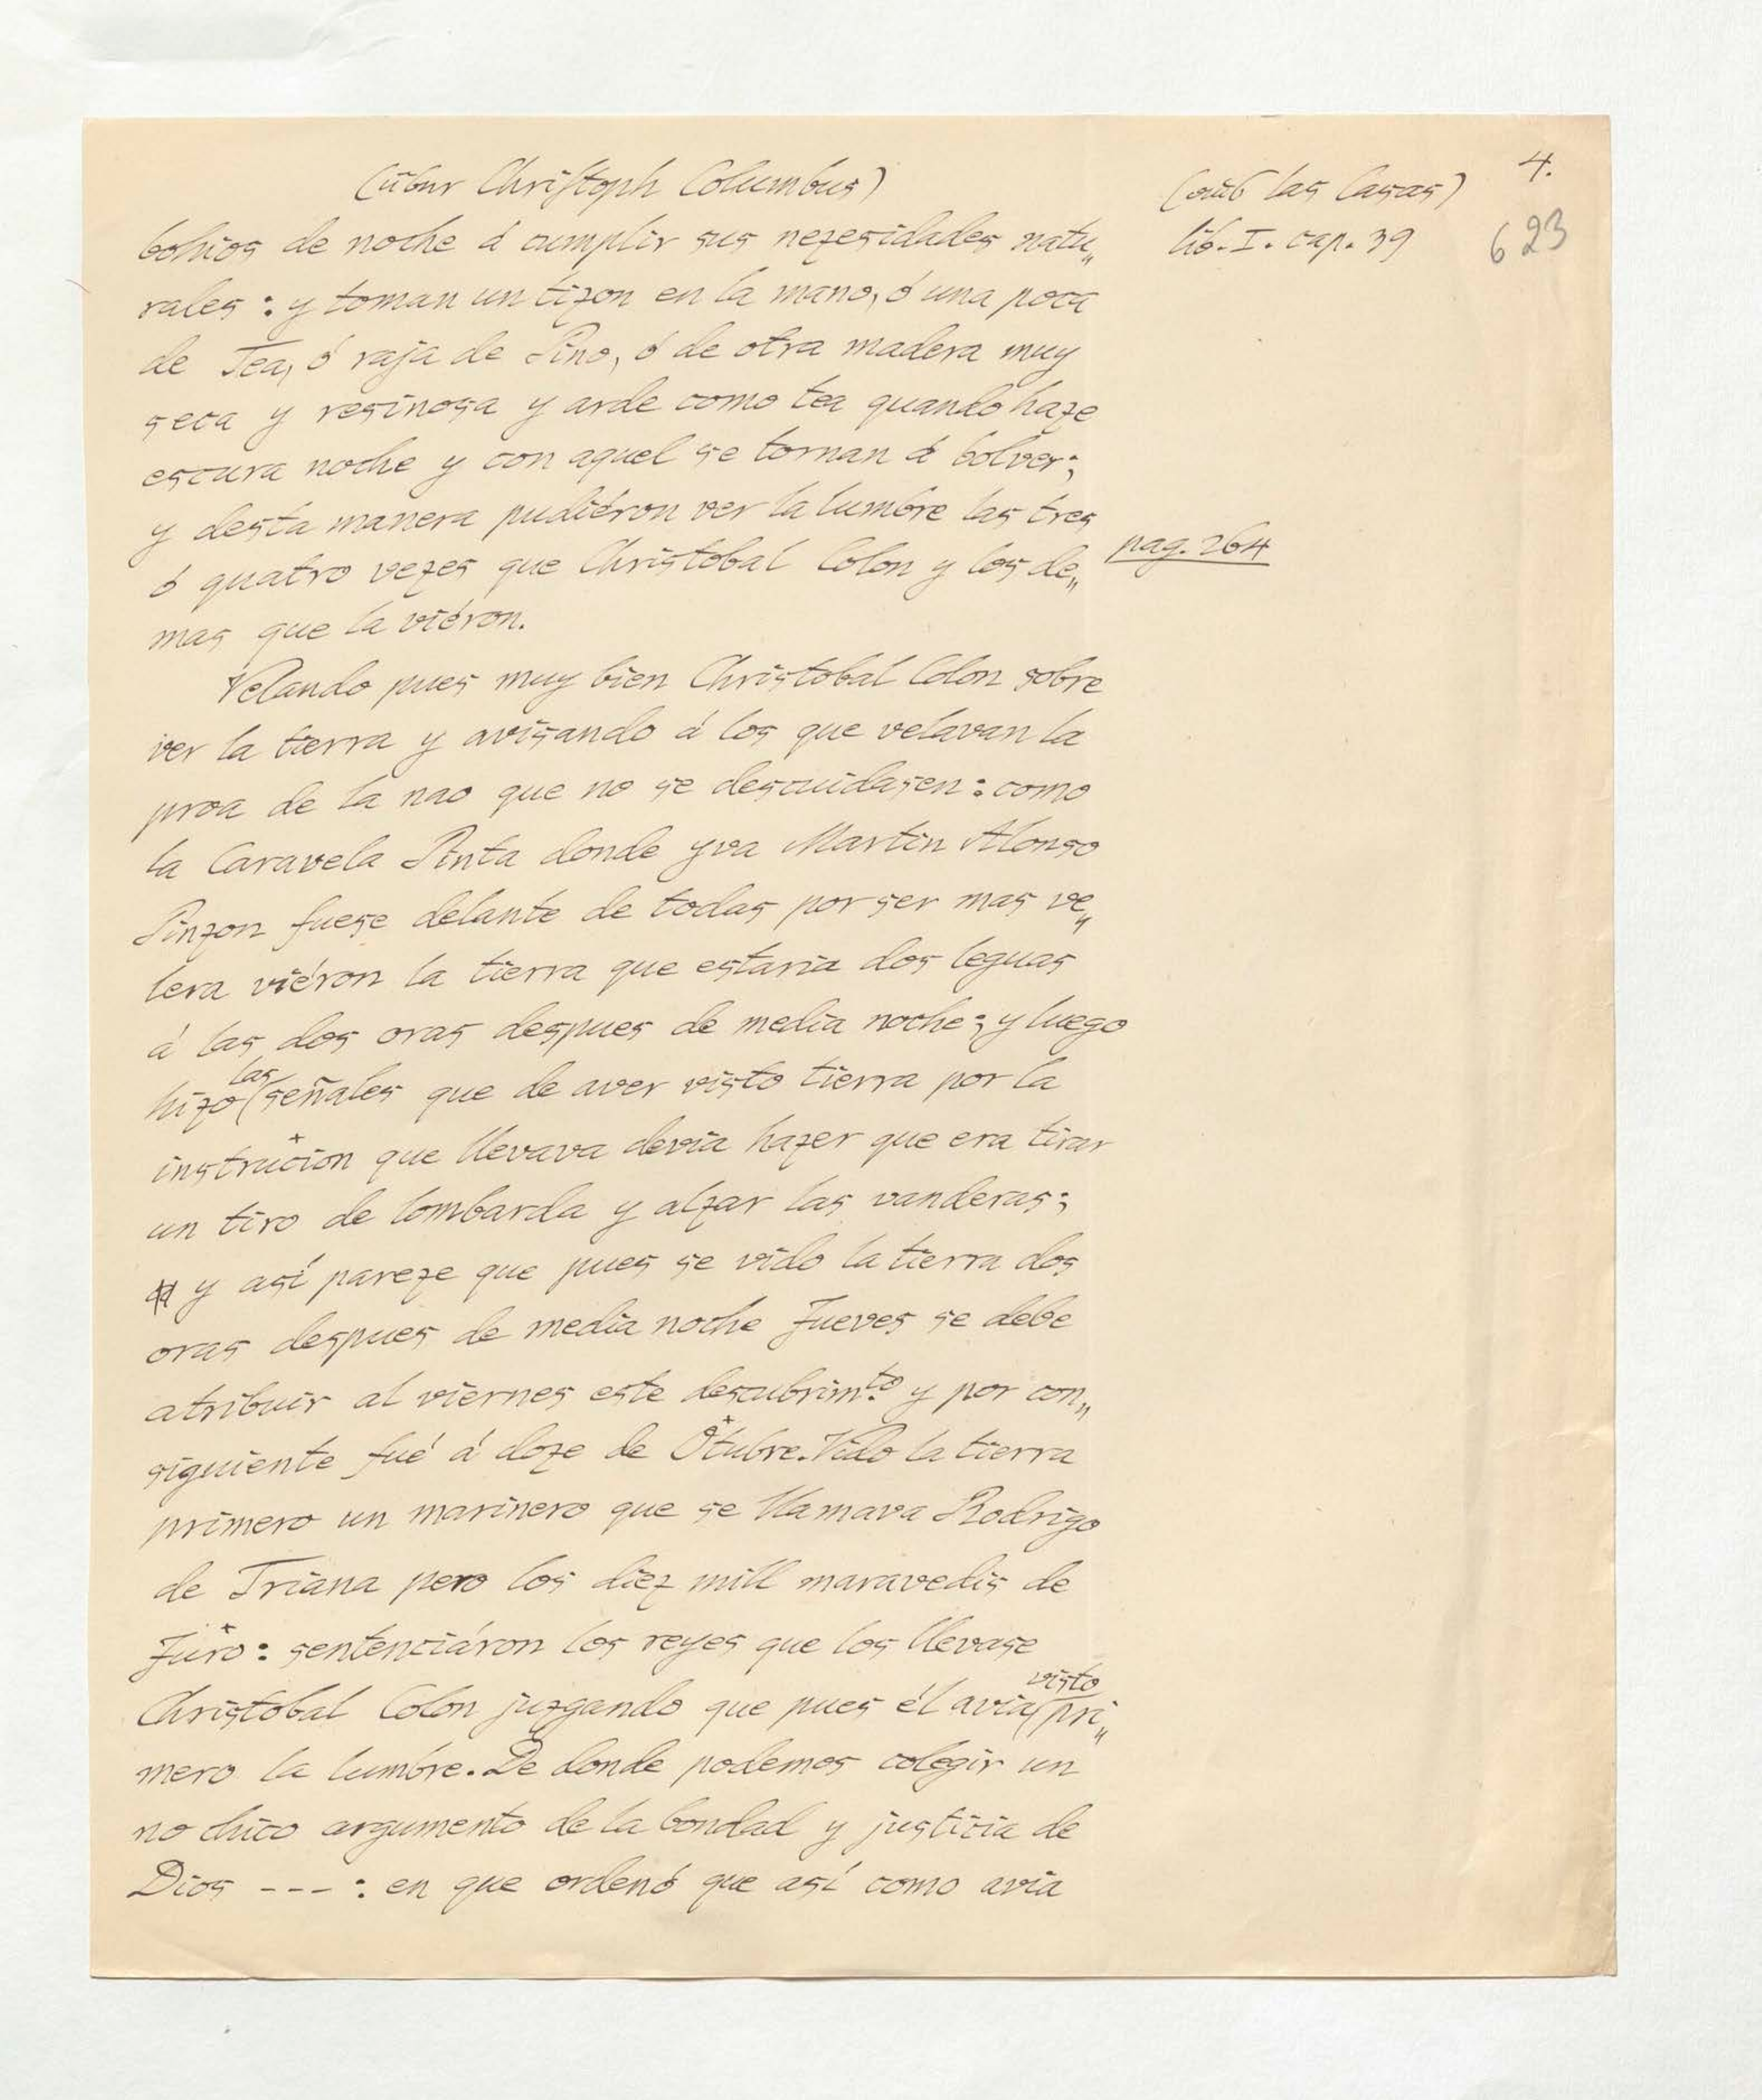 4.
(über Christoph Columbus)
(aus las Casas)
lib. I. cap. 39
623
bohios de noche á cumplir sus nezesidades natu„
rales : y toman un tizon en la mano, ó una poca
de Tea, ó raja de Pino, ó de otra madera muy
seca y resinosa y arde como tea quando haze
escura noche y con aquel se tornan á bolver;
y desta manera pudiéron ver la lumbre las tres
ó quatro vezes que Christobal Colon y los de„
pag. 264
mas que la viéron.
Velando pues muy bien Christobal Colon sobre
ver la tierra y avisando á los que velavan la
proa de la nao que no se descuidasen : como
la Caravela Pinta donde yva Martin Alonso
Pinzon fuese delante de todas por ser mas ve„
lera viéron la tierra que estaria dos leguas
á las dos oras despues de media noche; y luego
hizo (las señales que de aver visto tierra por la
instrucion que llevava devia hazer que era tirar
un tiro de lombarda y alzar las vanderas;
y así pareze que pues se vido la tierra dos
oras despues de media noche Jueves se debe
atribuir al viernes este descubrimto. y por con„
siguiente fué á doze de Otubre. Vido la tierra
primero un marinero que se llamava Rodrigo
de Triana pero los diez mill maravedis de
Juro : sentenciáron los reyes que los llevase
Christobal Colon juzgando que pues él avia (visto pri„
mero la lumbre. De donde podemos colegir un
no chico argumento de la bondad y justicia de
Dios - - - : en que ordenó que así como avia